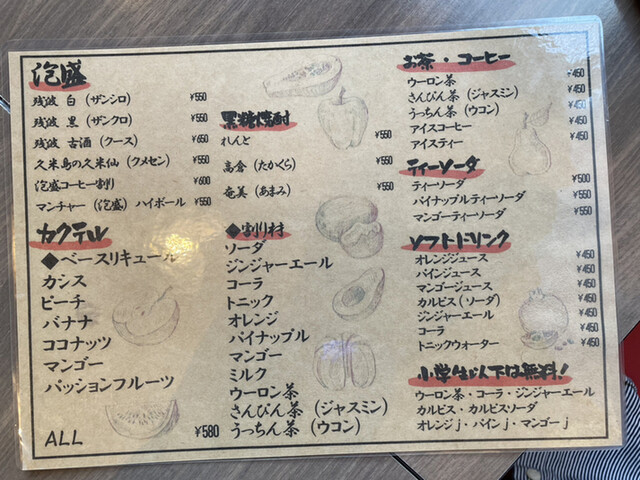 泡盛
残波 白（ザンシロ） ¥550
残波 黒（ザンクロ） ¥550
残波 古酒（クース） ¥650
久米島の久米仙（クメセン） ¥550
泡盛コーヒー割り ¥600
マンチャー（泡盛）ハイボール ¥550
カクテル
◆ベースリキュール
カシス
ピーチ
バナナ
ココナッツ
マンゴー
パッションフルーツ
ALL ¥580
黒糖焼酎
れんと ¥550
高倉（たかくら） ¥550
奄美（あまみ） ¥550
◆割り材
ソーダ
ジンジャーエール
コーラ
トニック
オレンジ
パイナップル
マンゴー
ミルク
ウーロン茶
さんぴん茶（ジャスミン）
うっちん茶（ウコン）
お茶・コーヒー
ウーロン茶 ¥450
さんぴん茶（ジャスミン） ¥450
うっちん茶（ウコン） ¥450
アイスコーヒー ¥450
アイスティー ¥450
ティーソーダ
ティーソーダ ¥500
パイナップルティーソーダ ¥550
マンゴーティーソーダ ¥550
ソフトドリンク
オレンジジュース ¥450
パインジュース ¥450
マンゴージュース ¥450
カルピス（ソーダ） ¥450
ジンジャーエール ¥450
コーラ ¥450
トニックウォーター ¥450
小学生以下は無料！
ウーロン茶・コーラ・ジンジャーエール
カルピス・カルピスソーダ
オレンジj・パインj・マンゴーj